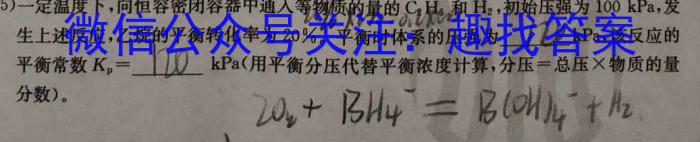 5)一定温度下,向恒容密闭容器中通入等物质的量的 C₂H₆ 和 H₂,初始压强为 100 kPa,发
生上述反应,乙烷的平衡转化率为20%。平衡时体系的压强为 kPa,该反应的
微信公众号关注:趣找答案
平衡常数 Kₚ= 120 kPa(用平衡分压代替平衡浓度计算,分压=总压×物质的量
分数)。
2O₂ + BH₄⁻ = B(OH)₄⁻ + H₂